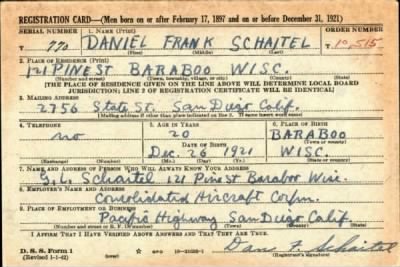 REGISTRATION CARD—(Men born on or after February 17, 1897 and on or before December 31, 1921)
SERIAL NUMBER 1. NAME (Print) ORDER NUMBER
T 770 DANIEL FRANK SCHAITEL T 10,515
(First) (Middle) (Last)
2. PLACE OF RESIDENCE (Print)
121 PINE ST BARABOO WISC.
(Number and street) (Town, township, village, or city) (County) (State)
[THE PLACE OF RESIDENCE GIVEN ON THE LINE ABOVE WILL DETERMINE LOCAL BOARD
JURISDICTION; LINE 2 OF REGISTRATION CERTIFICATE WILL BE IDENTICAL]
3. MAILING ADDRESS
2756 State St. San Diego Calif.
[Mailing address if other than place indicated on line 2. If same insert word same]
4. TELEPHONE 5. AGE IN YEARS 6. PLACE OF BIRTH
no 20 BARABOO
DATE OF BIRTH (Town or county)
Dec. 26 1921 WISC.
(Exchange) (Number) (Mo.) (Day) (Yr.) (State or country)
7. NAME AND ADDRESS OF PERSON WHO WILL ALWAYS KNOW YOUR ADDRESS
Schaitel 121 Pine st Baraboo Wisc.
8. EMPLOYER'S NAME AND ADDRESS
Consolidated Aircraft Corpn.
9. PLACE OF EMPLOYMENT OR BUSINESS
Pacific Highway San Diego Calif.
(Number and street or R. F. D. number) (Town) (County) (State)
I AFFIRM THAT I HAVE VERIFIED ABOVE ANSWERS AND THAT THEY ARE TRUE.
D. S. S. Form 1
(Revised 1-1-42) (over)
F. Schaitel